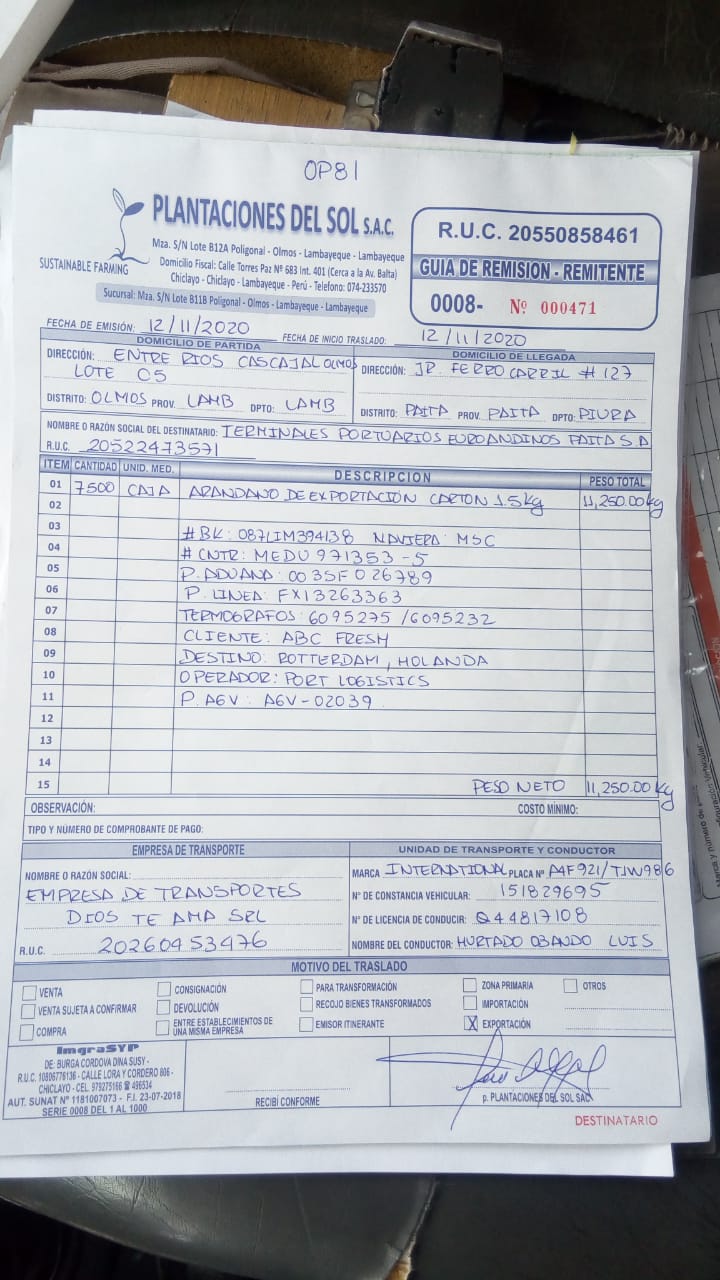 OP81
PLANTACIONES DEL SOL S.A.C.
SUSTAINABLE FARMING
Mza. S/N Lote B12A Poligonal - Olmos - Lambayeque - Lambayeque
Domicilio Fiscal: Calle Torres Paz Nº 683 Int. 401 (Cerca a la Av. Balta)
Chiclayo - Chiclayo - Lambayeque - Perú - Telefono: 074-233570
Sucursal: Mza. S/N Lote B11B Poligonal - Olmos - Lambayeque - Lambayeque
R.U.C. 20550858461
GUIA DE REMISION - REMITENTE
0008- Nº 000471
FECHA DE EMISIÓN: 12/11/2020 FECHA DE INICIO TRASLADO: 12/11/2020
DOMICILIO DE PARTIDA
DIRECCIÓN: ENTRE RIOS CASCAJAL OLMOS
LOTE C5
DISTRITO: OLMOS PROV. LAMB DPTO: LAMB
DOMICILIO DE LLEGADA
DIRECCIÓN: JR. FERROCARRIL # 127
DISTRITO: PAITA PROV. PAITA DPTO: PIURA
NOMBRE O RAZÓN SOCIAL DEL DESTINATARIO: TERMINALES PORTUARIOS EUROANDINOS PAITA S.A
R.U.C. 20522473571
ITEM CANTIDAD UNID. MED. DESCRIPCION PESO TOTAL
01 7500 CAJA ARANDANO DE EXPORTACIÓN CARTON 1.5kg 11,250.00kg
02
03 #BK: 087LIM394138 NAVIERA: MSC
04 #CNTR: MEDU 971353-5
05 P. ADUANA: 003SF026789
06 P. LINEA: FX13263363
07 TERMOGRAFOS: 6095275 /6095232
08 CLIENTE: ABC FRESH
09 DESTINO: ROTTERDAM, HOLANDA
10 OPERADOR: PORT LOGISTICS
11 P. AGV: AGV-02039
12
13
14
15 PESO NETO 11,250.00 kg
OBSERVACIÓN: COSTO MÍNIMO:
TIPO Y NÚMERO DE COMPROBANTE DE PAGO:
EMPRESA DE TRANSPORTE
NOMBRE O RAZÓN SOCIAL:
EMPRESA DE TRANSPORTES
DIOS TE AMA SRL
R.U.C. 20260453476
UNIDAD DE TRANSPORTE Y CONDUCTOR
MARCA INTERNATIONAL PLACA Nº A4F921/T1W986
Nº DE CONSTANCIA VEHICULAR: 151829695
Nº DE LICENCIA DE CONDUCIR: Q44817108
NOMBRE DEL CONDUCTOR: HURTADO OBANDO LUIS
MOTIVO DEL TRASLADO
VENTA CONSIGNACIÓN PARA TRANSFORMACIÓN ZONA PRIMARIA OTROS
VENTA SUJETA A CONFIRMAR DEVOLUCIÓN RECOJO BIENES TRANSFORMADOS IMPORTACIÓN
COMPRA ENTRE ESTABLECIMIENTOS DE UNA MISMA EMPRESA EMISOR ITINERANTE X EXPORTACIÓN
ImgraSYP
DE: BURGA CORDOVA DINA SUSY -
R.U.C. 10806776136 - CALLE LORA Y CORDERO 806 -
CHICLAYO - CEL. 979275166 ☎ 496534
AUT. SUNAT Nº 1181007073 - F.I. 23-07-2018
SERIE 0008 DEL 1 AL 1000
RECIBÍ CONFORME
p. PLANTACIONES DEL SOL SAC
DESTINATARIO